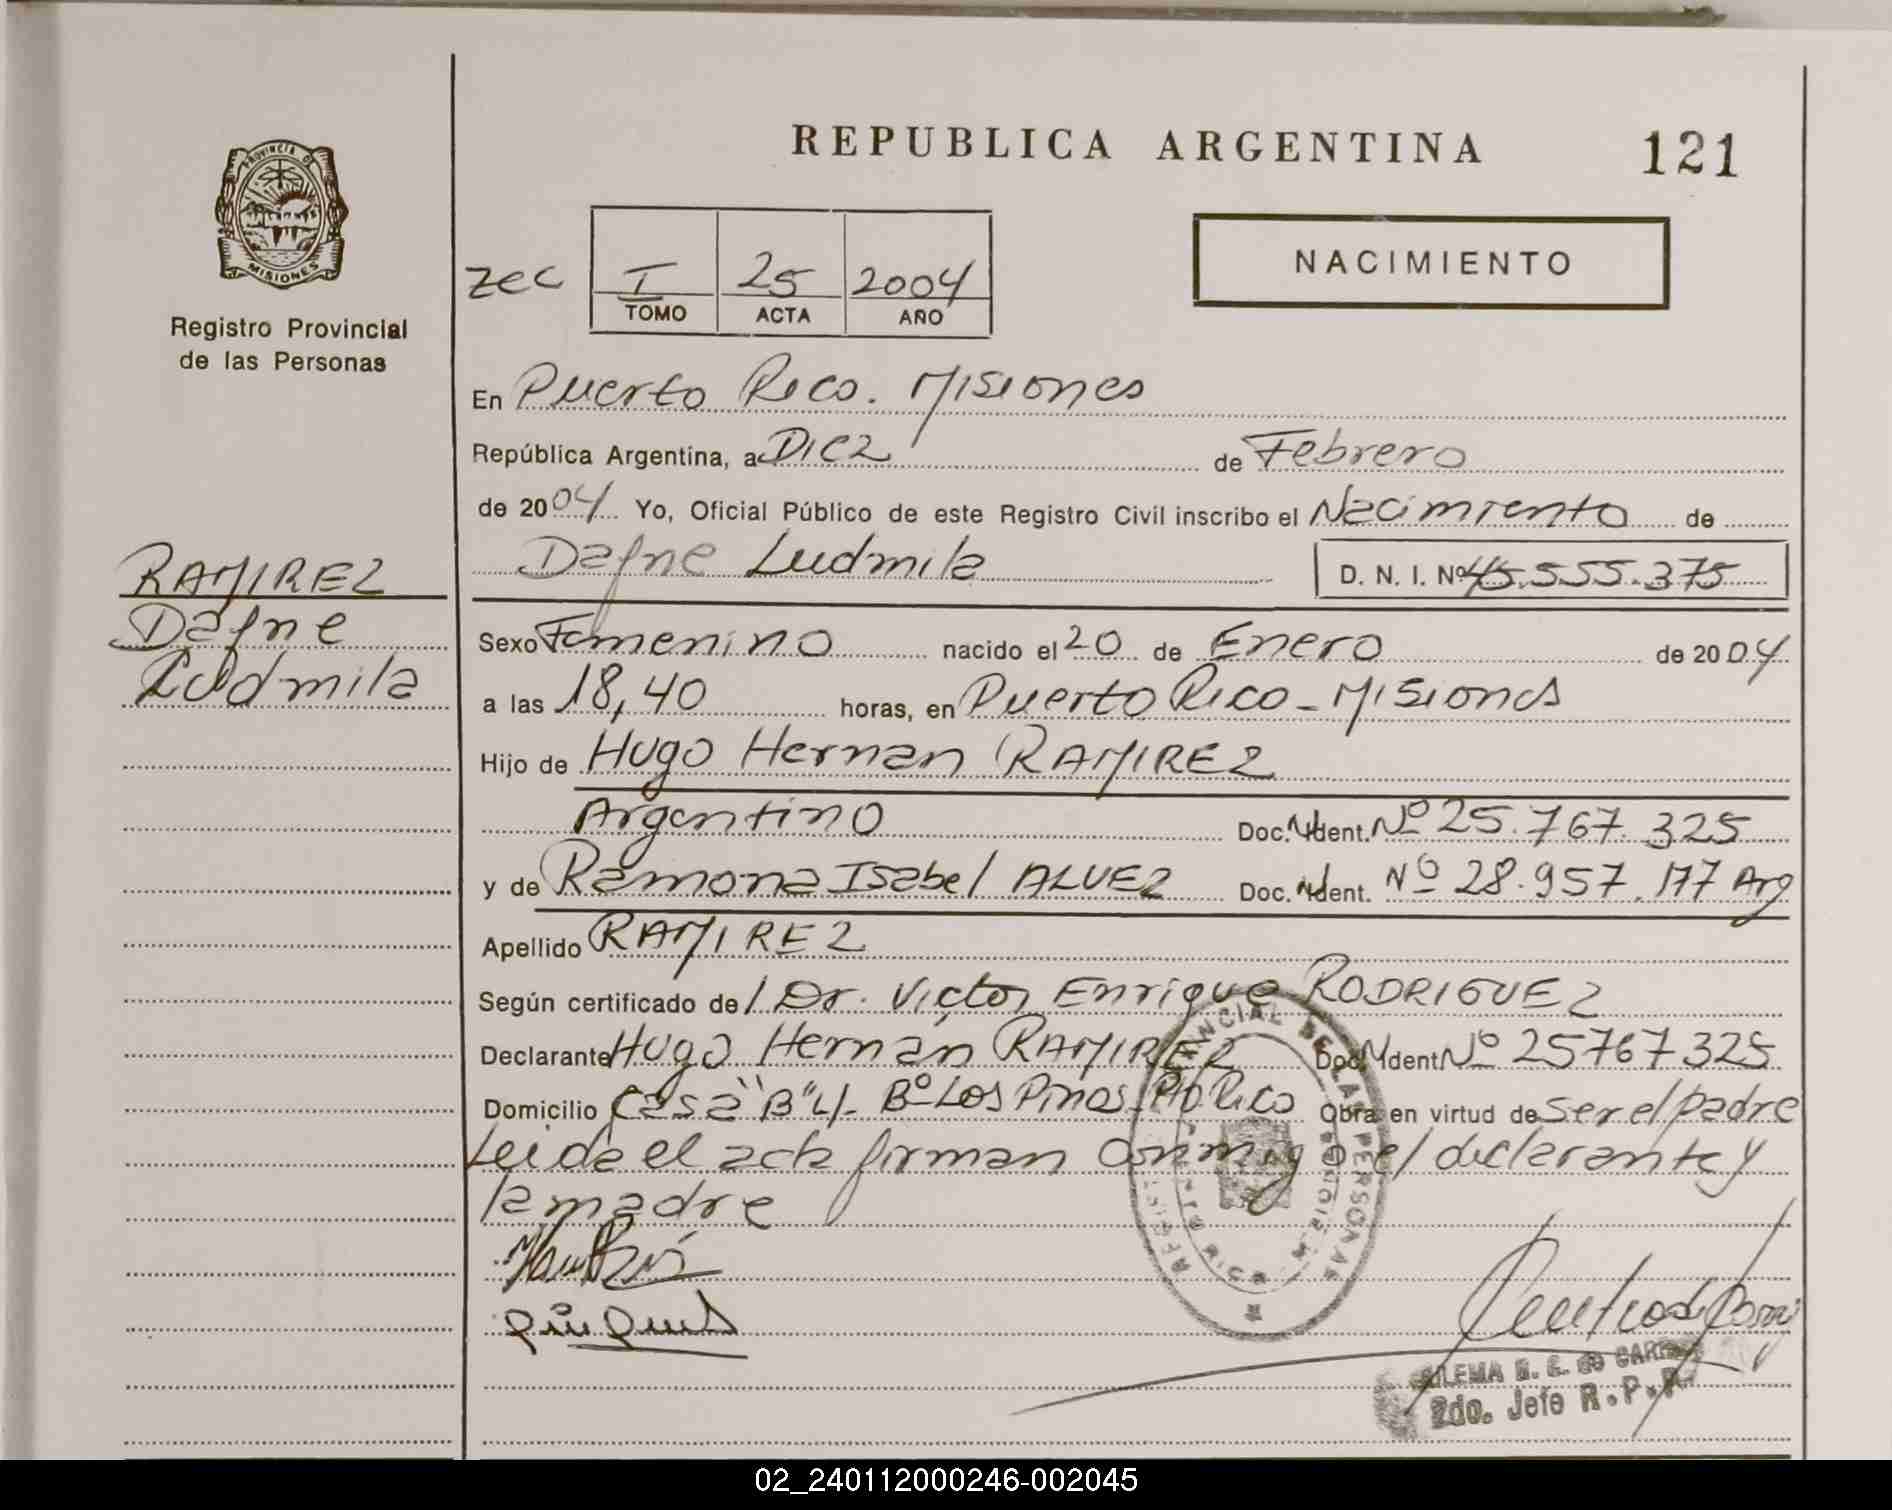 REPUBLICA ARGENTINA
121
PROVINCIA DE MISIONES
Registro Provincial
de las Personas
zec
I 25 2004
TOMO ACTA AÑO
NACIMIENTO
En Puerto Rico. Misiones
República Argentina, a Diez de Febrero
de 2004 Yo, Oficial Público de este Registro Civil inscribo el Nacimiento de
Dafne Ludmila D. N. I. Nº 45.555.375
RAMIREZ
Dafne
Ludmila
Sexo Femenino nacido el 20 de Enero de 2004
a las 18,40 horas, en Puerto Rico - Misiones
Hijo de Hugo Hernan RAMIREZ
Argentino Doc. Ident. Nº 25.767.325
y de Ramona Isabel ALVEZ Doc. Ident. Nº 28.957.177 Arg
Apellido RAMIREZ
Según certificado de/ Dr. Victor Enrique RODRIGUEZ
Declarante Hugo Hernán RAMIREZ Doc. Ident. Nº 25767325
Domicilio Casa "B" 4- Bº Los Pinos. Pto Rico Obra en virtud de ser el padre
Leida el acta firman conmigo el declarante y
la madre
REGISTRO PROVINCIAL DE LAS PERSONAS
MISIONES
2do. Jefe R.P.P.
02_240112000246-002045